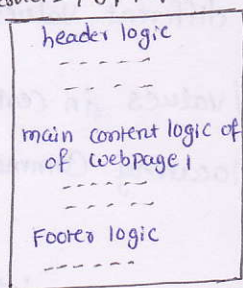 header logic
main content logic of
of webpage 1
Footer logic